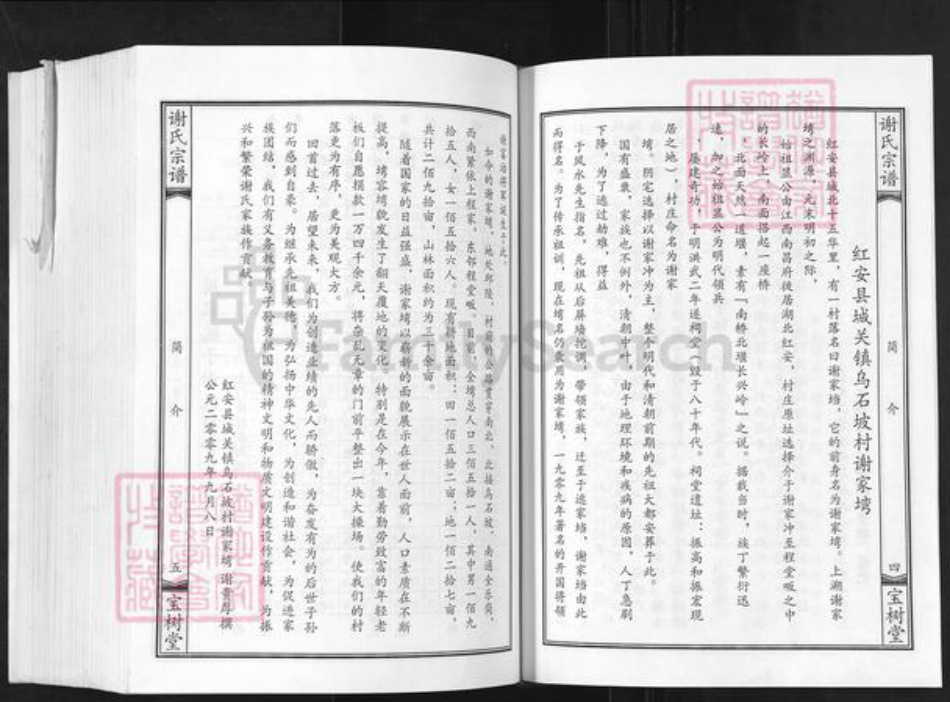 谢氏宗谱
简介
四
宝树堂
红安县城关镇乌石坡村谢家塆
红安县城北十五华里，有一村落名曰谢家垱，它的前身名为谢家塆。上溯谢家
塆之渊源，元末明初之际，
始祖显公由江西南昌府徙居湖北红安，村庄原址选择介于谢家冲至程堂畈之中
的长岭上，南面搭起一座桥
，北面天然一道堰，素有「南桥北堰长兴岭」之说。据载当时，族丁繁衍迅
速，加之始祖显公为明代领兵
，屡建奇功，于明洪武二年遂祠堂（毁于八十年代。祠堂遗址：振高和振宏现
居之地），村庄命名为谢家
塆。阴宅选择以谢家冲为主，整个明代和清朝前期的先祖大都安葬于此。
国有盛衰，家族也不例外，清朝中叶，由于地理环境和疾病的原因，人丁急剧
下降，为了逃过劫难，得益
于风水先生指名，先祖从后屏墙挖调，带领家族，迁至于逃家垱，谢家垱由此
而得名。为了传承祖训，现在塆名仍袭用为谢家塆。一九零九年著名的开国将领
谢富治将军诞生于此。
如今的谢家塆，地处邱陵，村前的公路贯穿南北，北接乌石坡，南通全乐岗，
西南紧依上程家，东邻程堂畈。目前，全塆总人口三佰五拾一人，其中男一佰九
拾五人，女一佰五拾六人。现有耕地面积：田一佰五拾二亩，地一佰二拾七亩，
共计二佰九拾亩，山林面积约为三十余亩。
随着国家的日益强盛，谢家塆以崭新的面貌展示在世人面前，人口素质在不断
提高，塆容塆貌发生了翻天覆地的变化。特别是在今年，靠着勤劳致富的年轻老
板们自愿捐款一万四千余元，将杂乱无章的门前平整出一块大操场。使我们的村
落更为有序，更为美观大方。
回首过去，居望未来，我们为创造业绩的先人而骄傲，为奋发有为的后世子孙
们而感到自豪。为继承先祖美德，为弘扬中华文化，为创造和谐社会，为促进家
族团结，我们有义务教育与子孙为祖国的精神文明和物质文明建设作贡献，为振
兴和繁荣谢氏家族作贡献。
红安县城关镇乌石坡村谢家塆 谢贵厚撰
公元二零零九年九月八日
谢氏宗谱
简介
五
宝树堂
FamilySearch